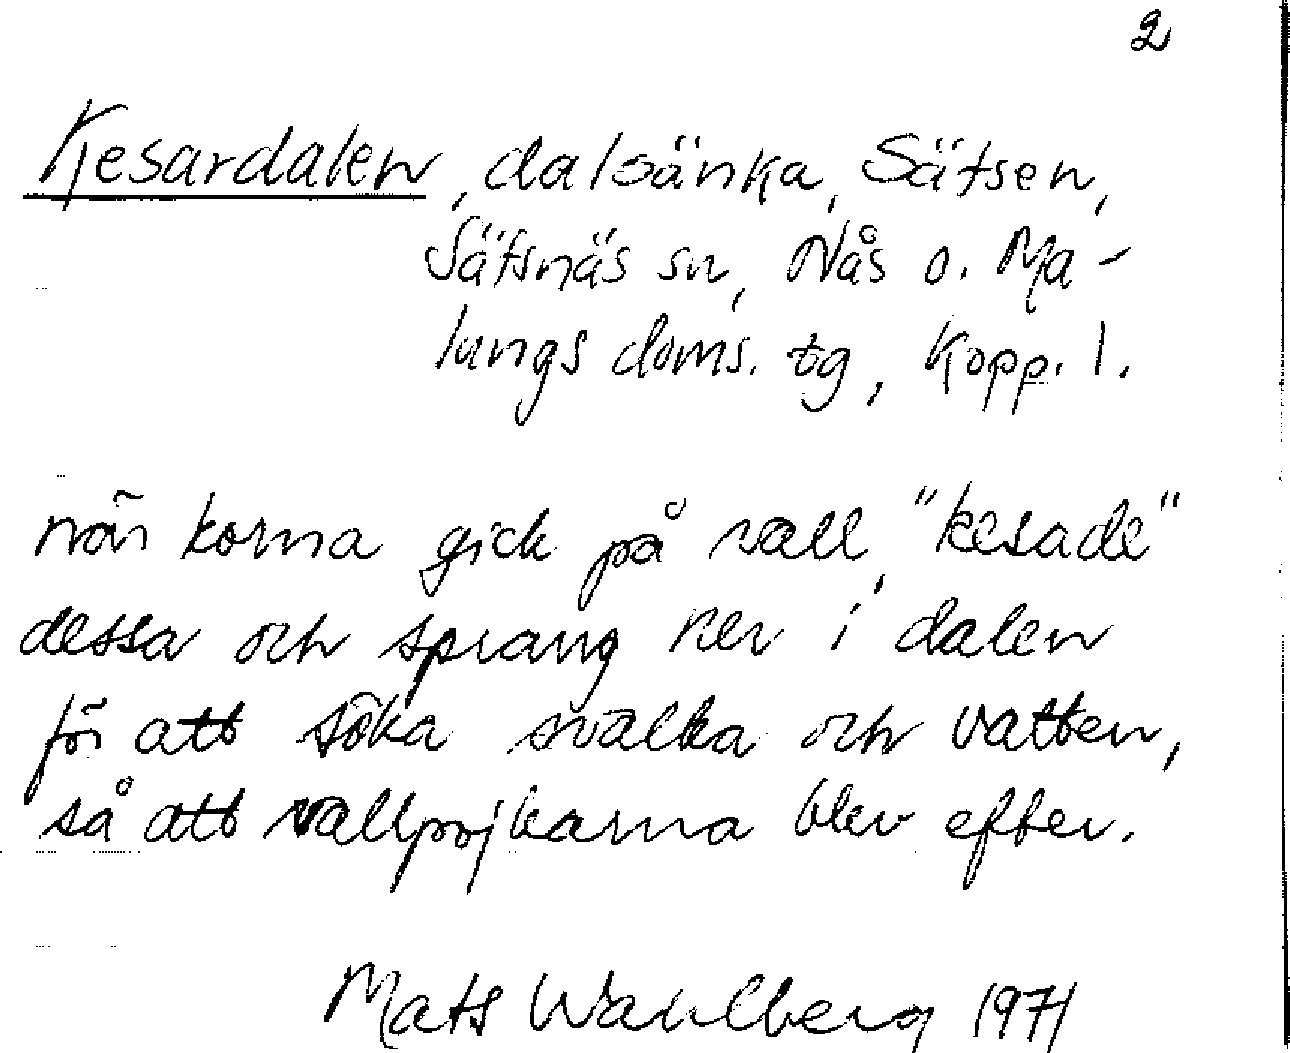 2
Kesardalen, dalsänka, Sätsen,
Sätsnäs sn, Nås o. Ma-
lungs doms. tg, Kopp. l.
när korna gick på vall, "kesade"
dessa och sprang ner i dalen
för att söka svalka och vatten,
så att vallpojkarna blev efter.
Mats Wahlberg 1971